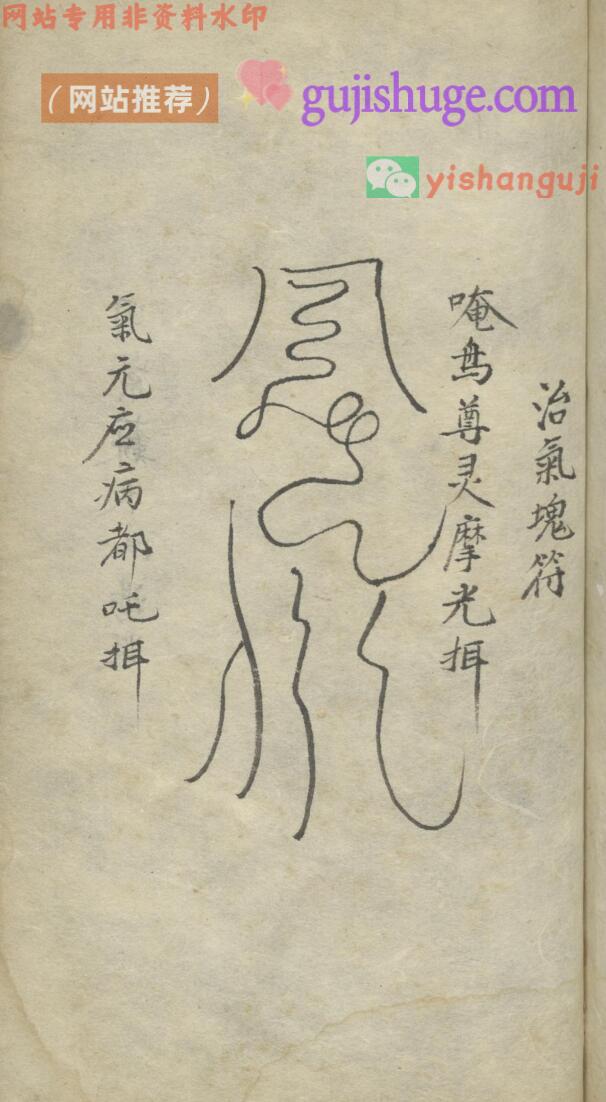 网站专用非资料水印
（网站推荐）
gujishuge.com
yishanguji
治氣塊符
唵為尊灵摩光抇
氣元应病都吒抇